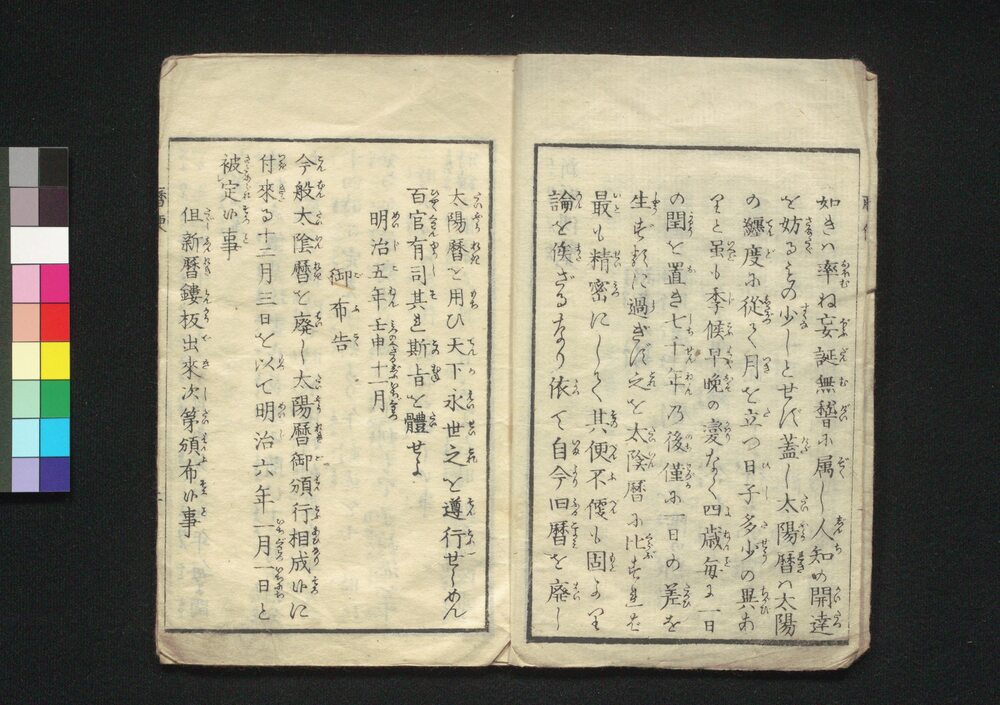 如きハ率ね妄誕無稽に属し人知の開達
を妨るもの少しとせず蓋し太陽暦ハ太陽
の躔度に從て月を立つ日子多少の異あ
りと雖も季候早晩の変なく四歳毎に一日
の閏を置き七千年乃後僅に一日の差を
生ずるに過ぎず之を太陰暦に比すれば
最も精密にして其便不便も固より
論を俟ざるなり依て自今旧暦を廃し
太陽暦を用ひ天下永世之を遵行せしめん
百官有司其れ斯旨を體せよ
明治五年壬申十一月
御布告
今般太陰暦を廃し太陽暦御頒行相成候に
付來る十二月三日を以て明治六年一月一日と
被定候事
但新暦鏤板出來次第頒布候事